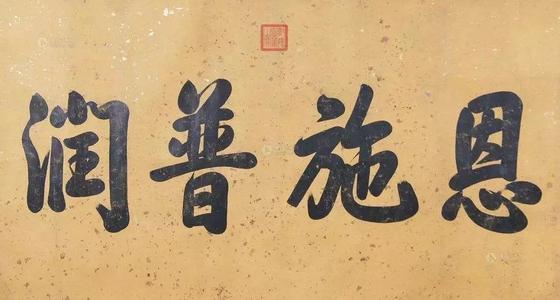 恩施普润